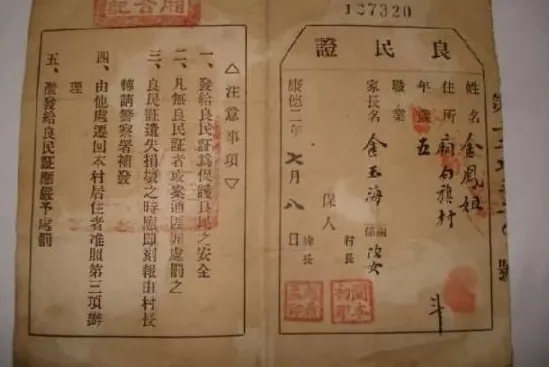 127320
良民證
姓名 金鳳姐
住所 廂白旗村
年歲 五
職業
家長名 金玉海 關係 次女
保人 村長
牌長
康德二年七月八日
△注意事項▽
一、發給良民証為保護良民之安全
二、凡無良民証者或案通匪罪處罰之
三、良民証遺失損壞之時應即刻報由村長
轉請警察署補發
四、由他處遷回本村居住者准照第三項辦
理
五、濫發給良民証應嚴予處罰